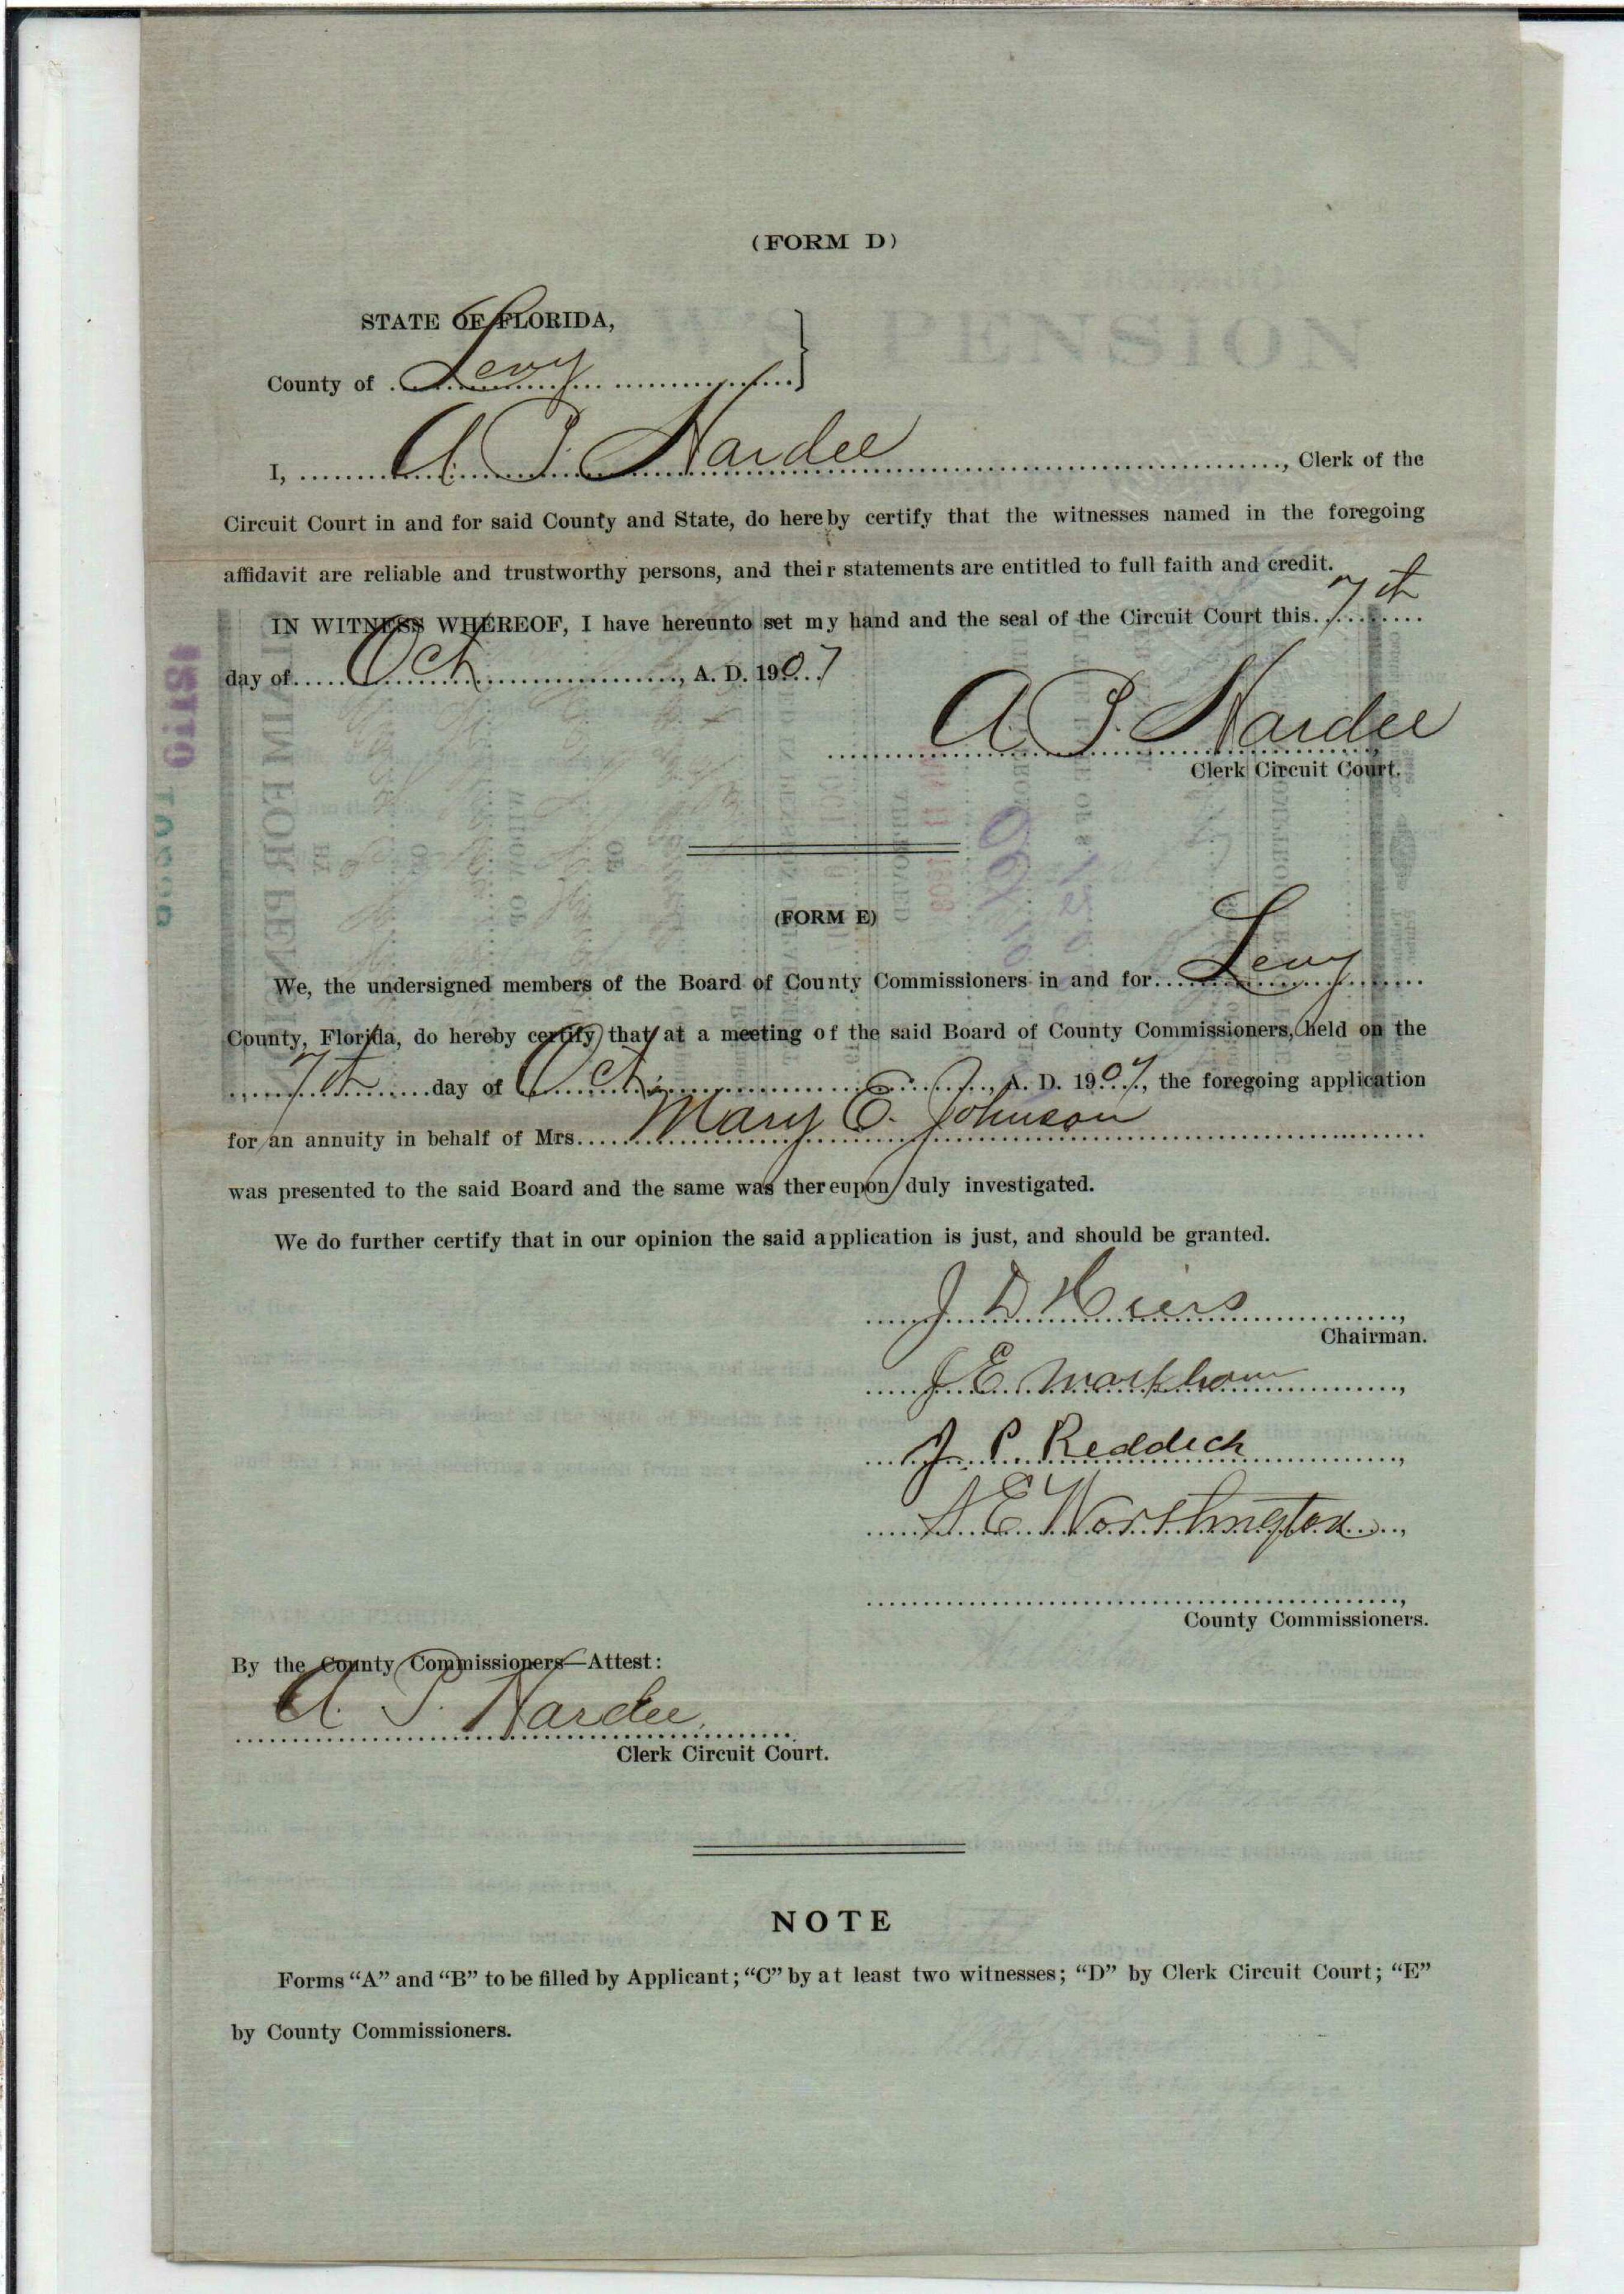 (FORM D)
STATE OF FLORIDA,
County of Levy
I, A. P. Hardee, Clerk of the
Circuit Court in and for said County and State, do hereby certify that the witnesses named in the foregoing
affidavit are reliable and trustworthy persons, and their statements are entitled to full faith and credit.
IN WITNESS WHEREOF, I have hereunto set my hand and the seal of the Circuit Court this 7th
day of Oct, A. D. 1907
A. P. Hardee
Clerk Circuit Court.
(FORM E)
We, the undersigned members of the Board of County Commissioners in and for Levy
County, Florida, do hereby certify that at a meeting of the said Board of County Commissioners, held on the
7th day of Oct, A. D. 1907, the foregoing application
for an annuity in behalf of Mrs. Mary E. Johnson
was presented to the said Board and the same was thereupon duly investigated.
We do further certify that in our opinion the said application is just, and should be granted.
J D Hiers,
Chairman.
J E Markham,
J. P. Reddick,
A E Worthington,
County Commissioners.
By the County Commissioners—Attest:
A. P. Hardee,
Clerk Circuit Court.
NOTE
Forms "A" and "B" to be filled by Applicant; "C" by at least two witnesses; "D" by Clerk Circuit Court; "E"
by County Commissioners.